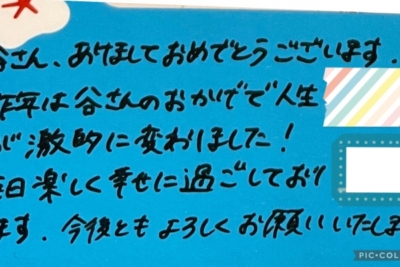 谷さん、あけましておめでとうございます.
昨年は谷さんのおかげで人生
が激的に変わりました!
毎日楽しく幸せに過ごしており
ます. 今後ともよろしくお願いいたしま
PIC•COL